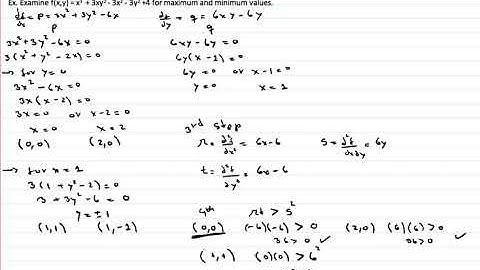 Ex. Examine f(x,y) = x³ + 3xy² - 3x² - 3y² +4 for maximum and minimum values.
∂f/∂x = p = 3x² + 3y² - 6x
p
3x² + 3y² - 6x = 0
3(x² + y² - 2x) = 0
→ for y = 0
3x² - 6x = 0
3x(x - 2) = 0
3x = 0 or x - 2 = 0
x = 0 x = 2
(0,0) (2,0)
→ for x = 1
3(1 + y² - 2) = 0
3 + 3y² - 6 = 0
y = ±1
(1,1) (1,-1)
∂f/∂y = q = 6xy - 6y
q
6xy - 6y = 0
6y(x - 1) = 0
6y = 0 or x - 1 = 0
y = 0 x = 1
3rd step
r = ∂²f/∂x² = 6x - 6 s = ∂²f/∂x∂y = 6y
t = ∂²f/∂y² = 6x - 6
4th rt > s²
(0,0) (-6)(-6) > 0 (2,0) (6)(6) > 0
36 > 0 ✓ 36 > 0 ✓
(1,1) (0)(0) > 6²